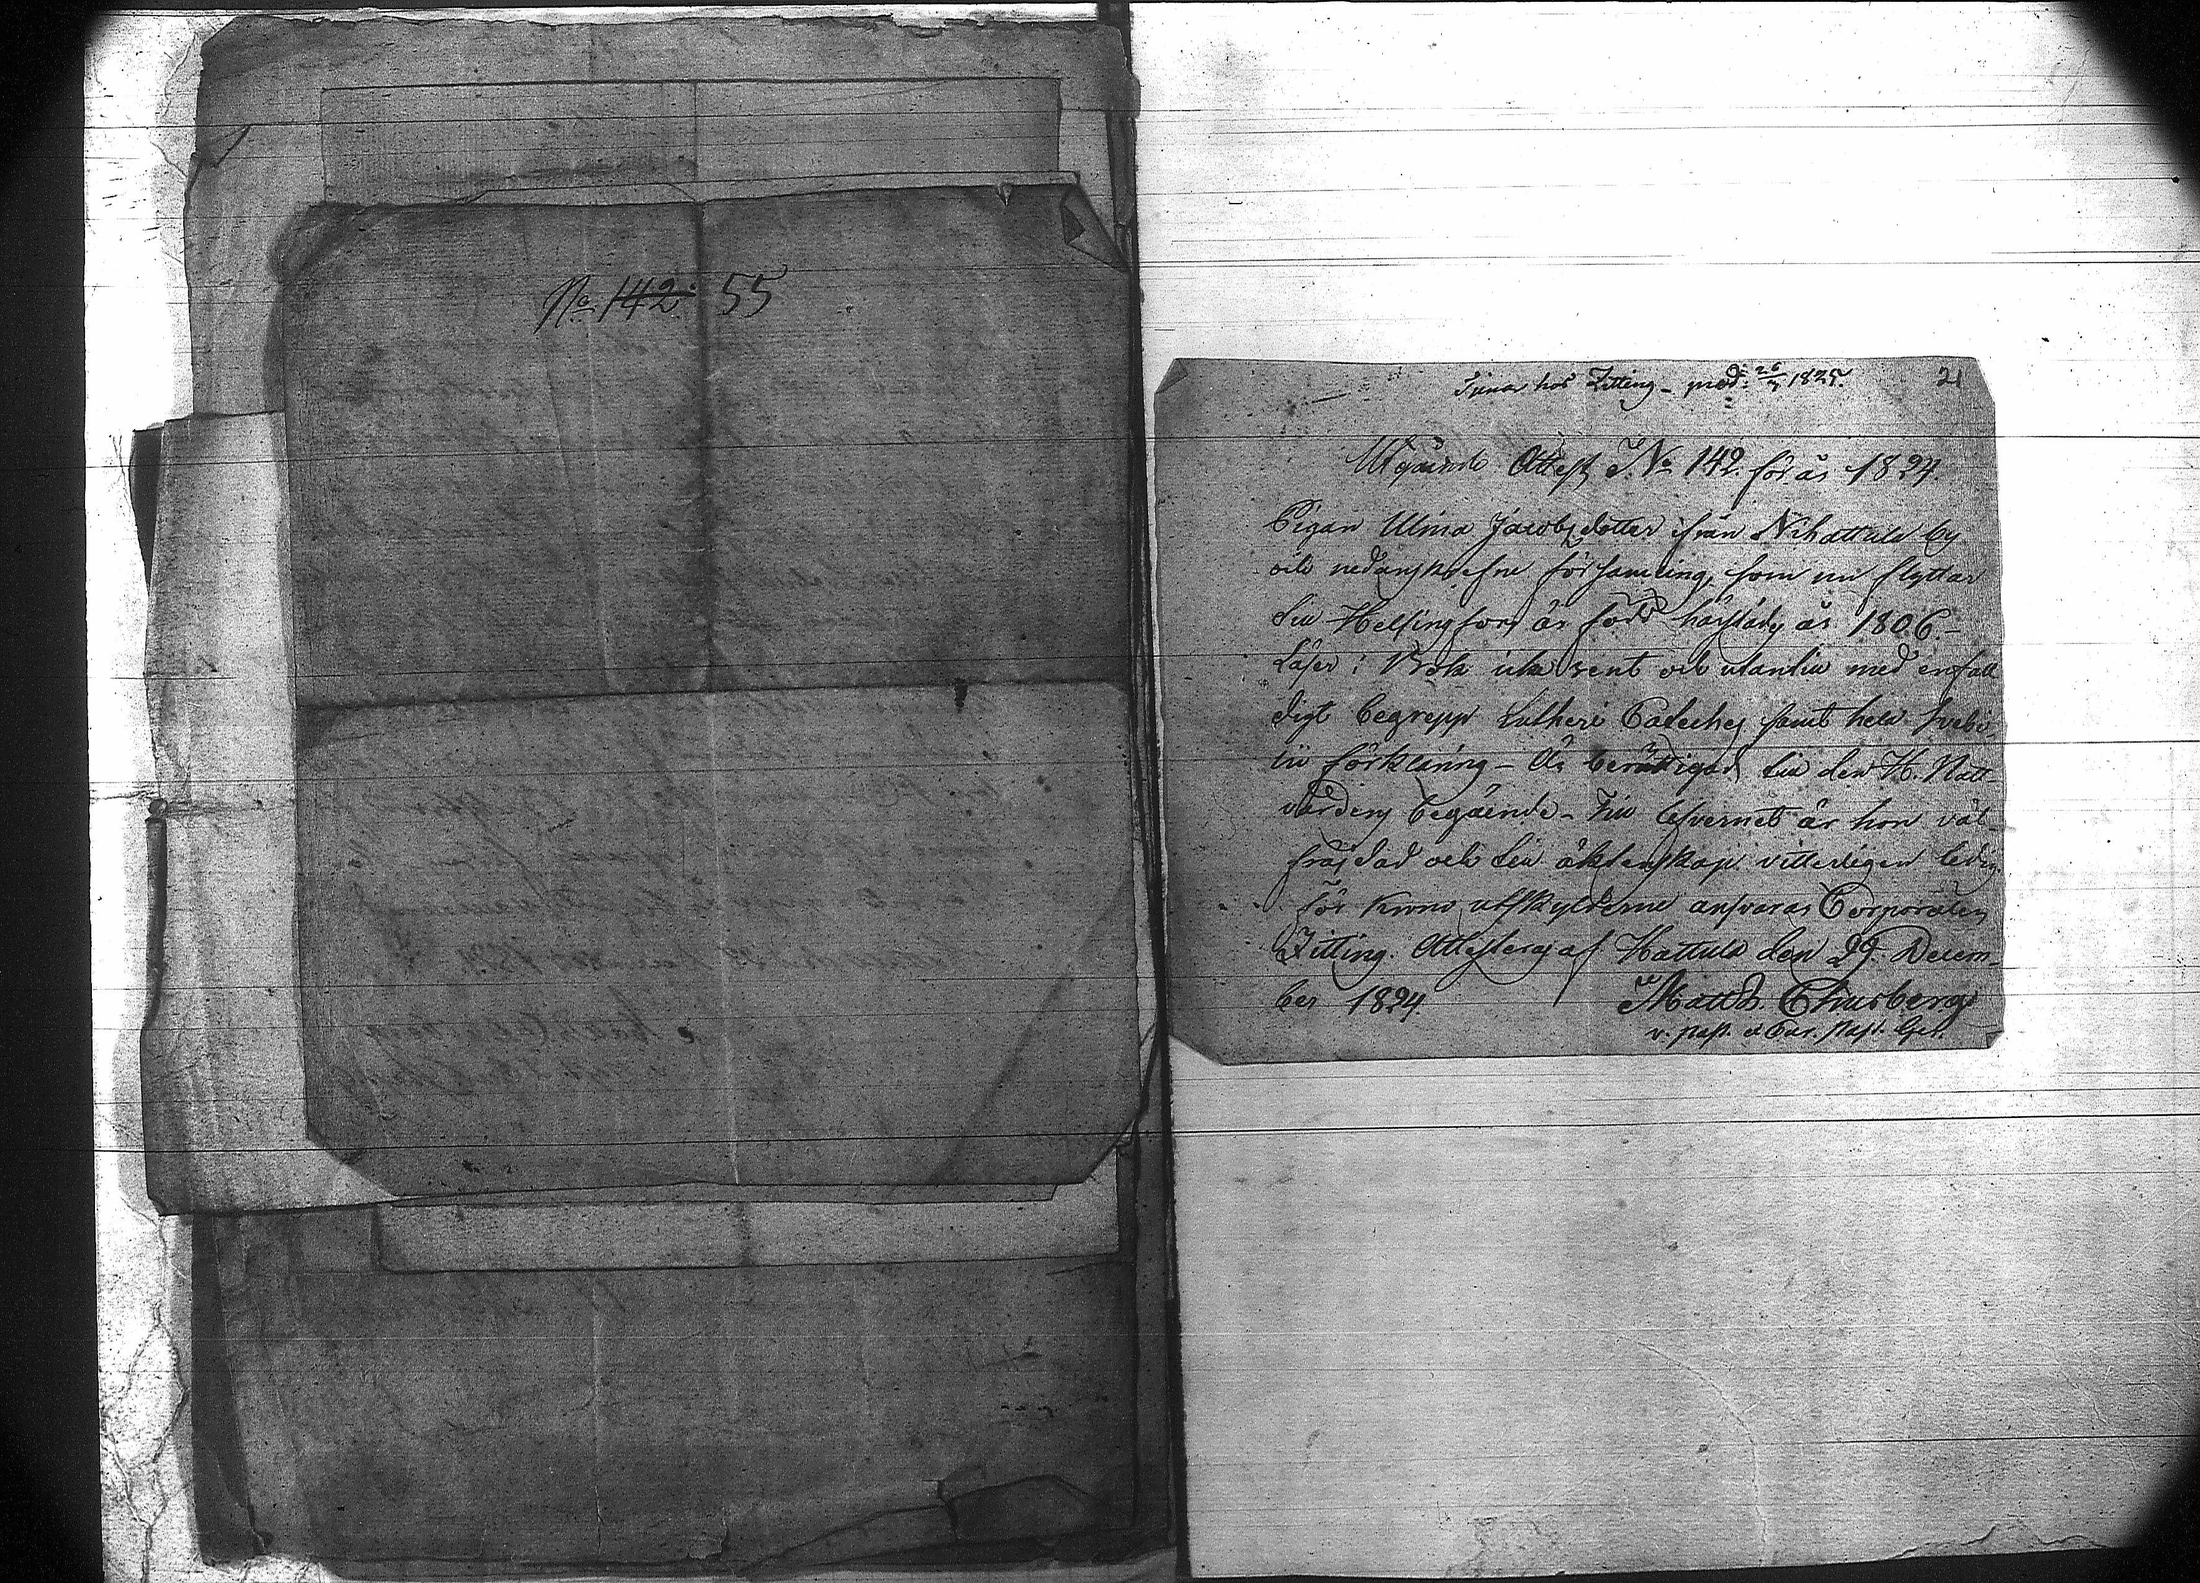 No 142. 55
Tjenar hos Zitting - prod: 26/3 1825.
21
Utgående Attest No 142. för år 1824.
Pigan Ulrica Jacobsdotter ifrån Nihattula by
och nedanskrefne församling, som nu flyttar
till Helsingfors är född härstädes år 1806.-
Läser i Bok icke rent och utantill med enfal-
digt begrepp Lutheri Cateches samt hela Svebi-
lii förklaring - Är berättigad till den H. Natt
vardens begående - Till lefvernet är hon väl-
fräjdad och till äktenskap vitterligen ledig.
För krono utskylderne ansvarar Corporalen
Zitting. Attesteras af Hattula den 29. Decem-
ber 1824.
Matth.
v. past.